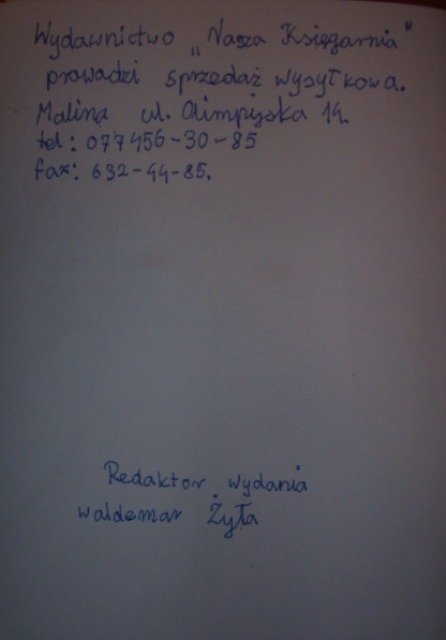 Wydawnictwo „Nasza Księgarnia"
prowadzi sprzedaż wysyłkowa.
Malina ul. Olimpijska 14.
tel: 077 456-30-85
fax: 632-44-85.
Redaktor wydania
waldemar Żyła